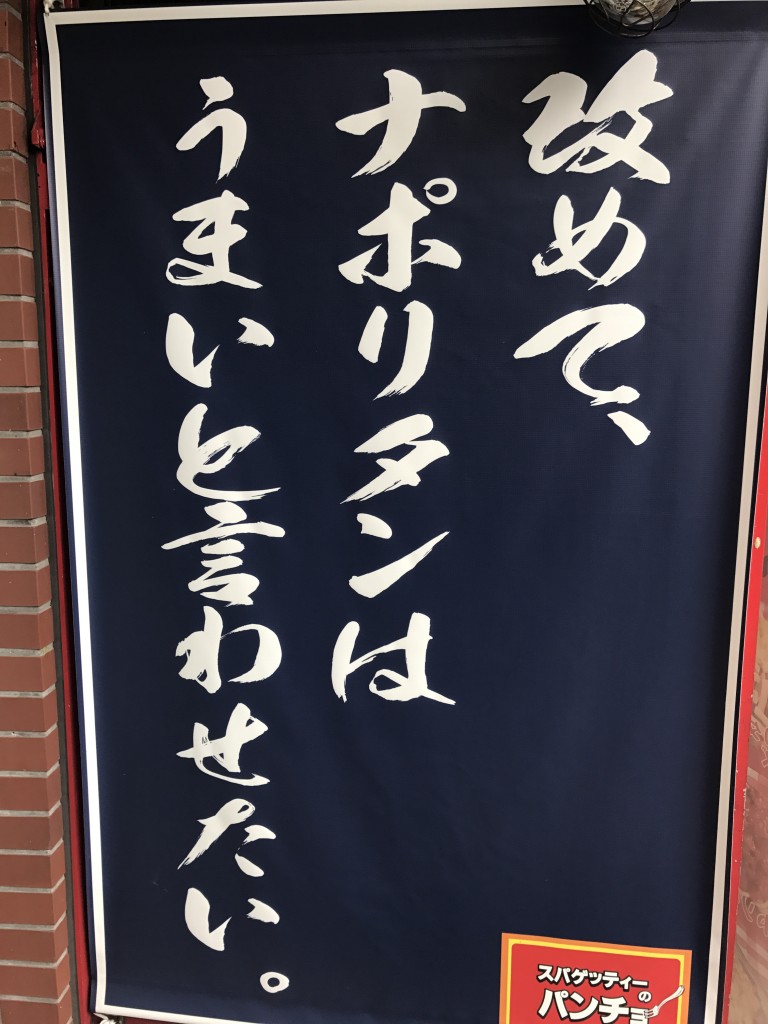 改めて、
ナポリタンは
うまいと言わせたい。
スパゲッティー
の
パンチョ